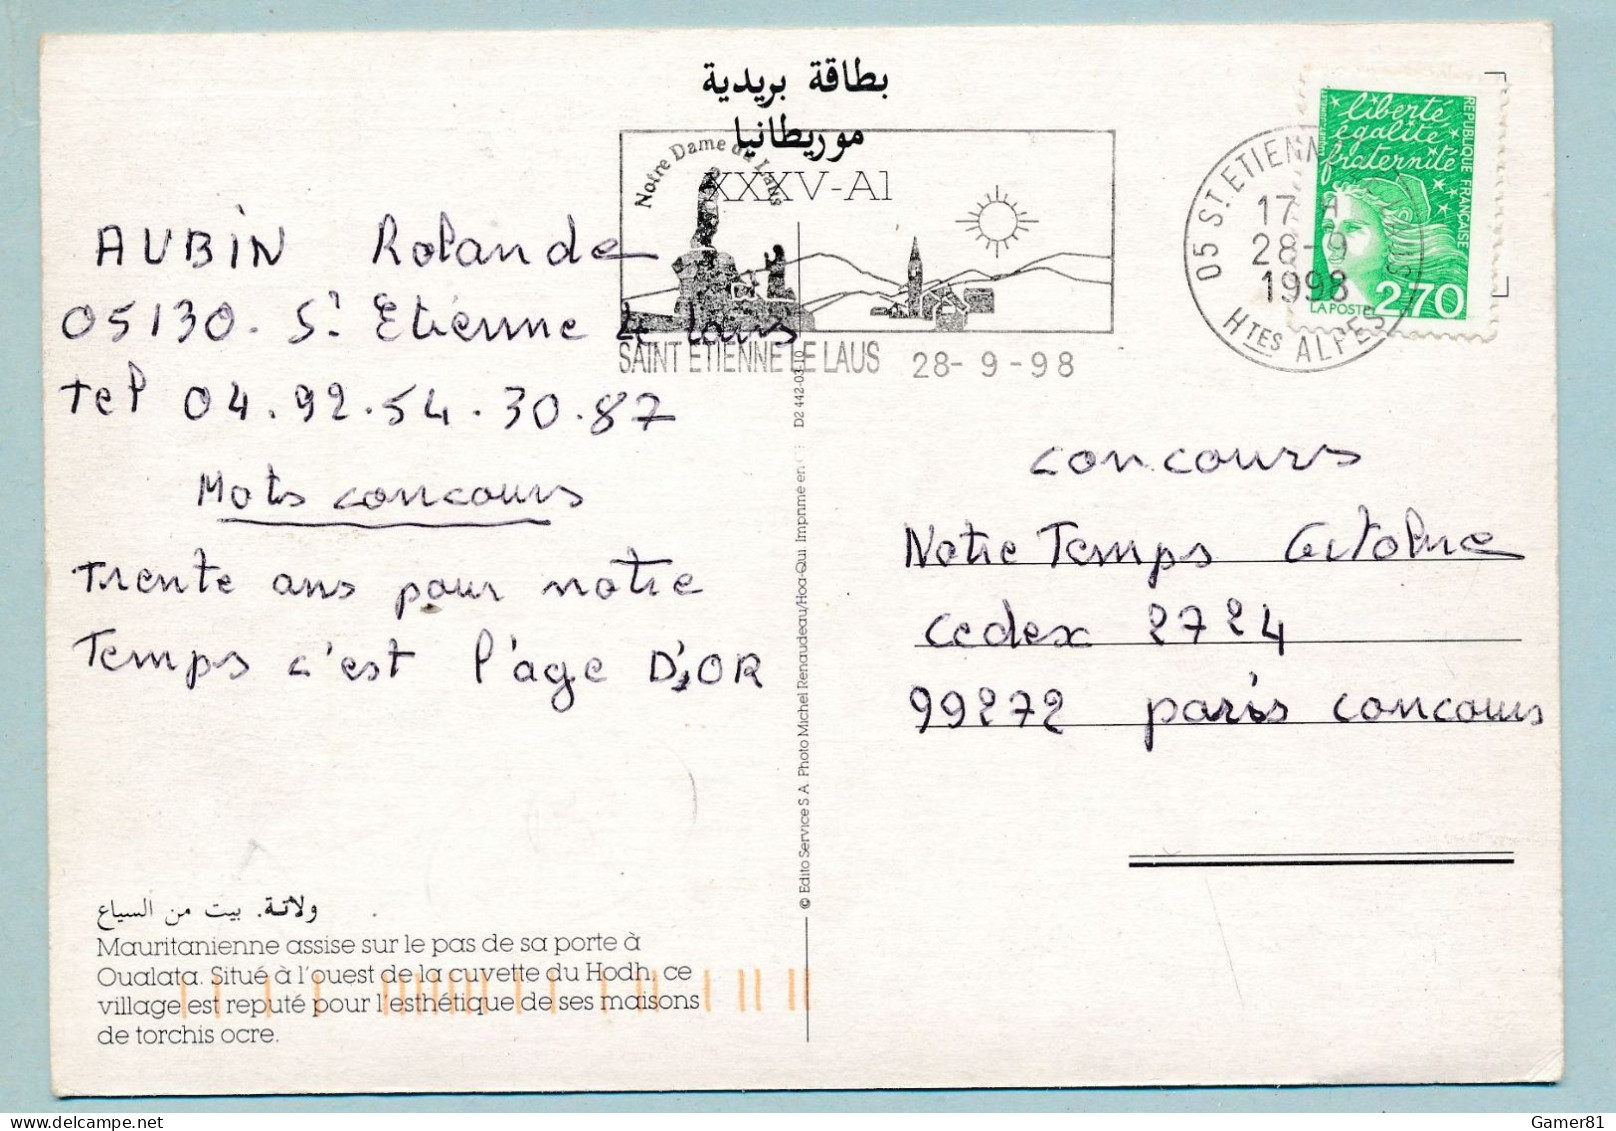 بطاقة بريدية
موريطانيا
XXXV-A1
Notre Dame du Laus
SAINT ETIENNE LE LAUS 28-9-98
05 ST ETIENNE LE LAUS
17 H
28-9
1998
HTES ALPES
liberté
égalité
fraternité
REPUBLIQUE FRANÇAISE
LA POSTE 2,70
AUBIN Rolande
05130. St Etienne le laus
tel 04.92.54.30.87
Mots concours
Trente ans pour notre
Temps c'est l'age D'OR
concours
Notre Temps Octobre
cedex 2724
99272 paris concours
© Edito Service S.A. Photo Michel Renaudeau/Hoa-Qui Imprimé en D2 442-03-10
ولاتة. بيت من السياع
Mauritanienne assise sur le pas de sa porte à
Oualata. Situé à l'ouest de la cuvette du Hodh, ce
village est reputé pour l'esthétique de ses maisons
de torchis ocre.
Gamer81